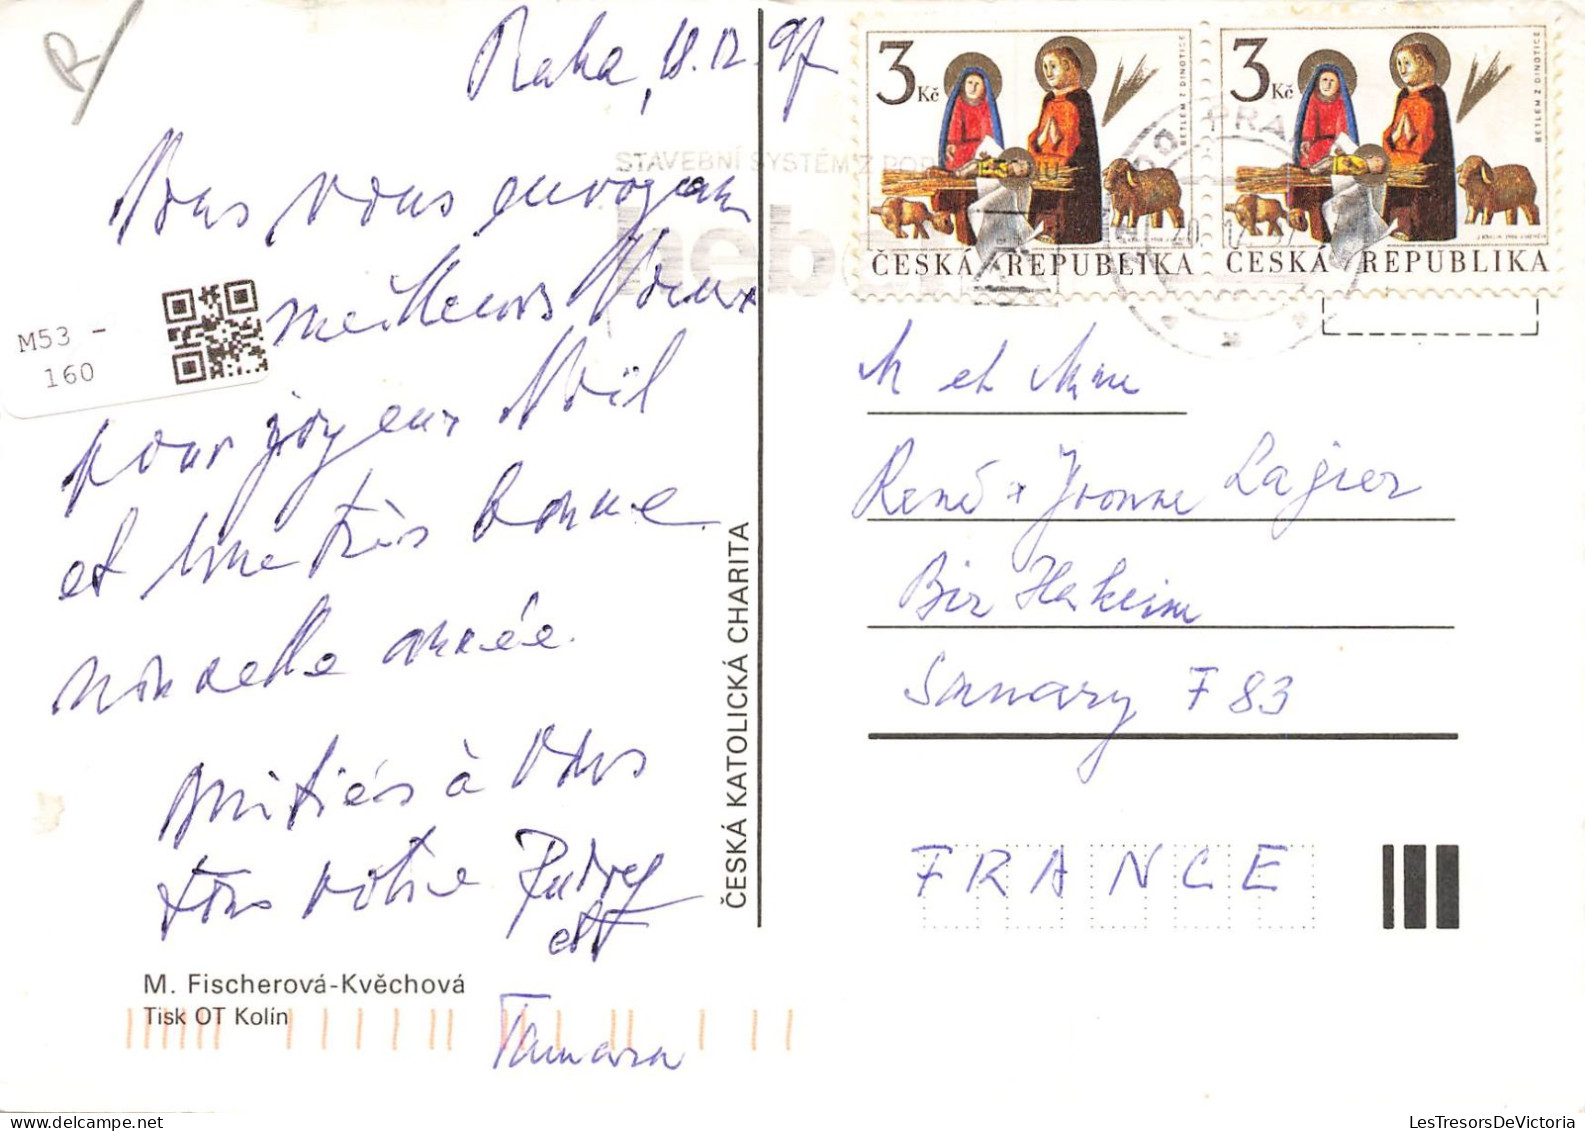 Praha, 18.12.97
Nous vous envoyons
meilleurs Vœux
pour joyeux Noël
et une très bonne
nouvelle année.
Amitiés à Vous
tous votre
et
Tamara
M53 -
160
M. Fischerová-Kvěchová
Tisk OT Kolín
ČESKÁ KATOLICKÁ CHARITA
STAVEBNÍ SYSTÉM Z
3 Kč
BETLÉM Z
ČESKÁ REPUBLIKA
3 Kč
BETLÉM Z
ČESKÁ REPUBLIKA
M et Mme
René + Yvonne Lagier
Bir Hakeim
Sanary F 83
FRANCE
LesTresorsDeVictoria